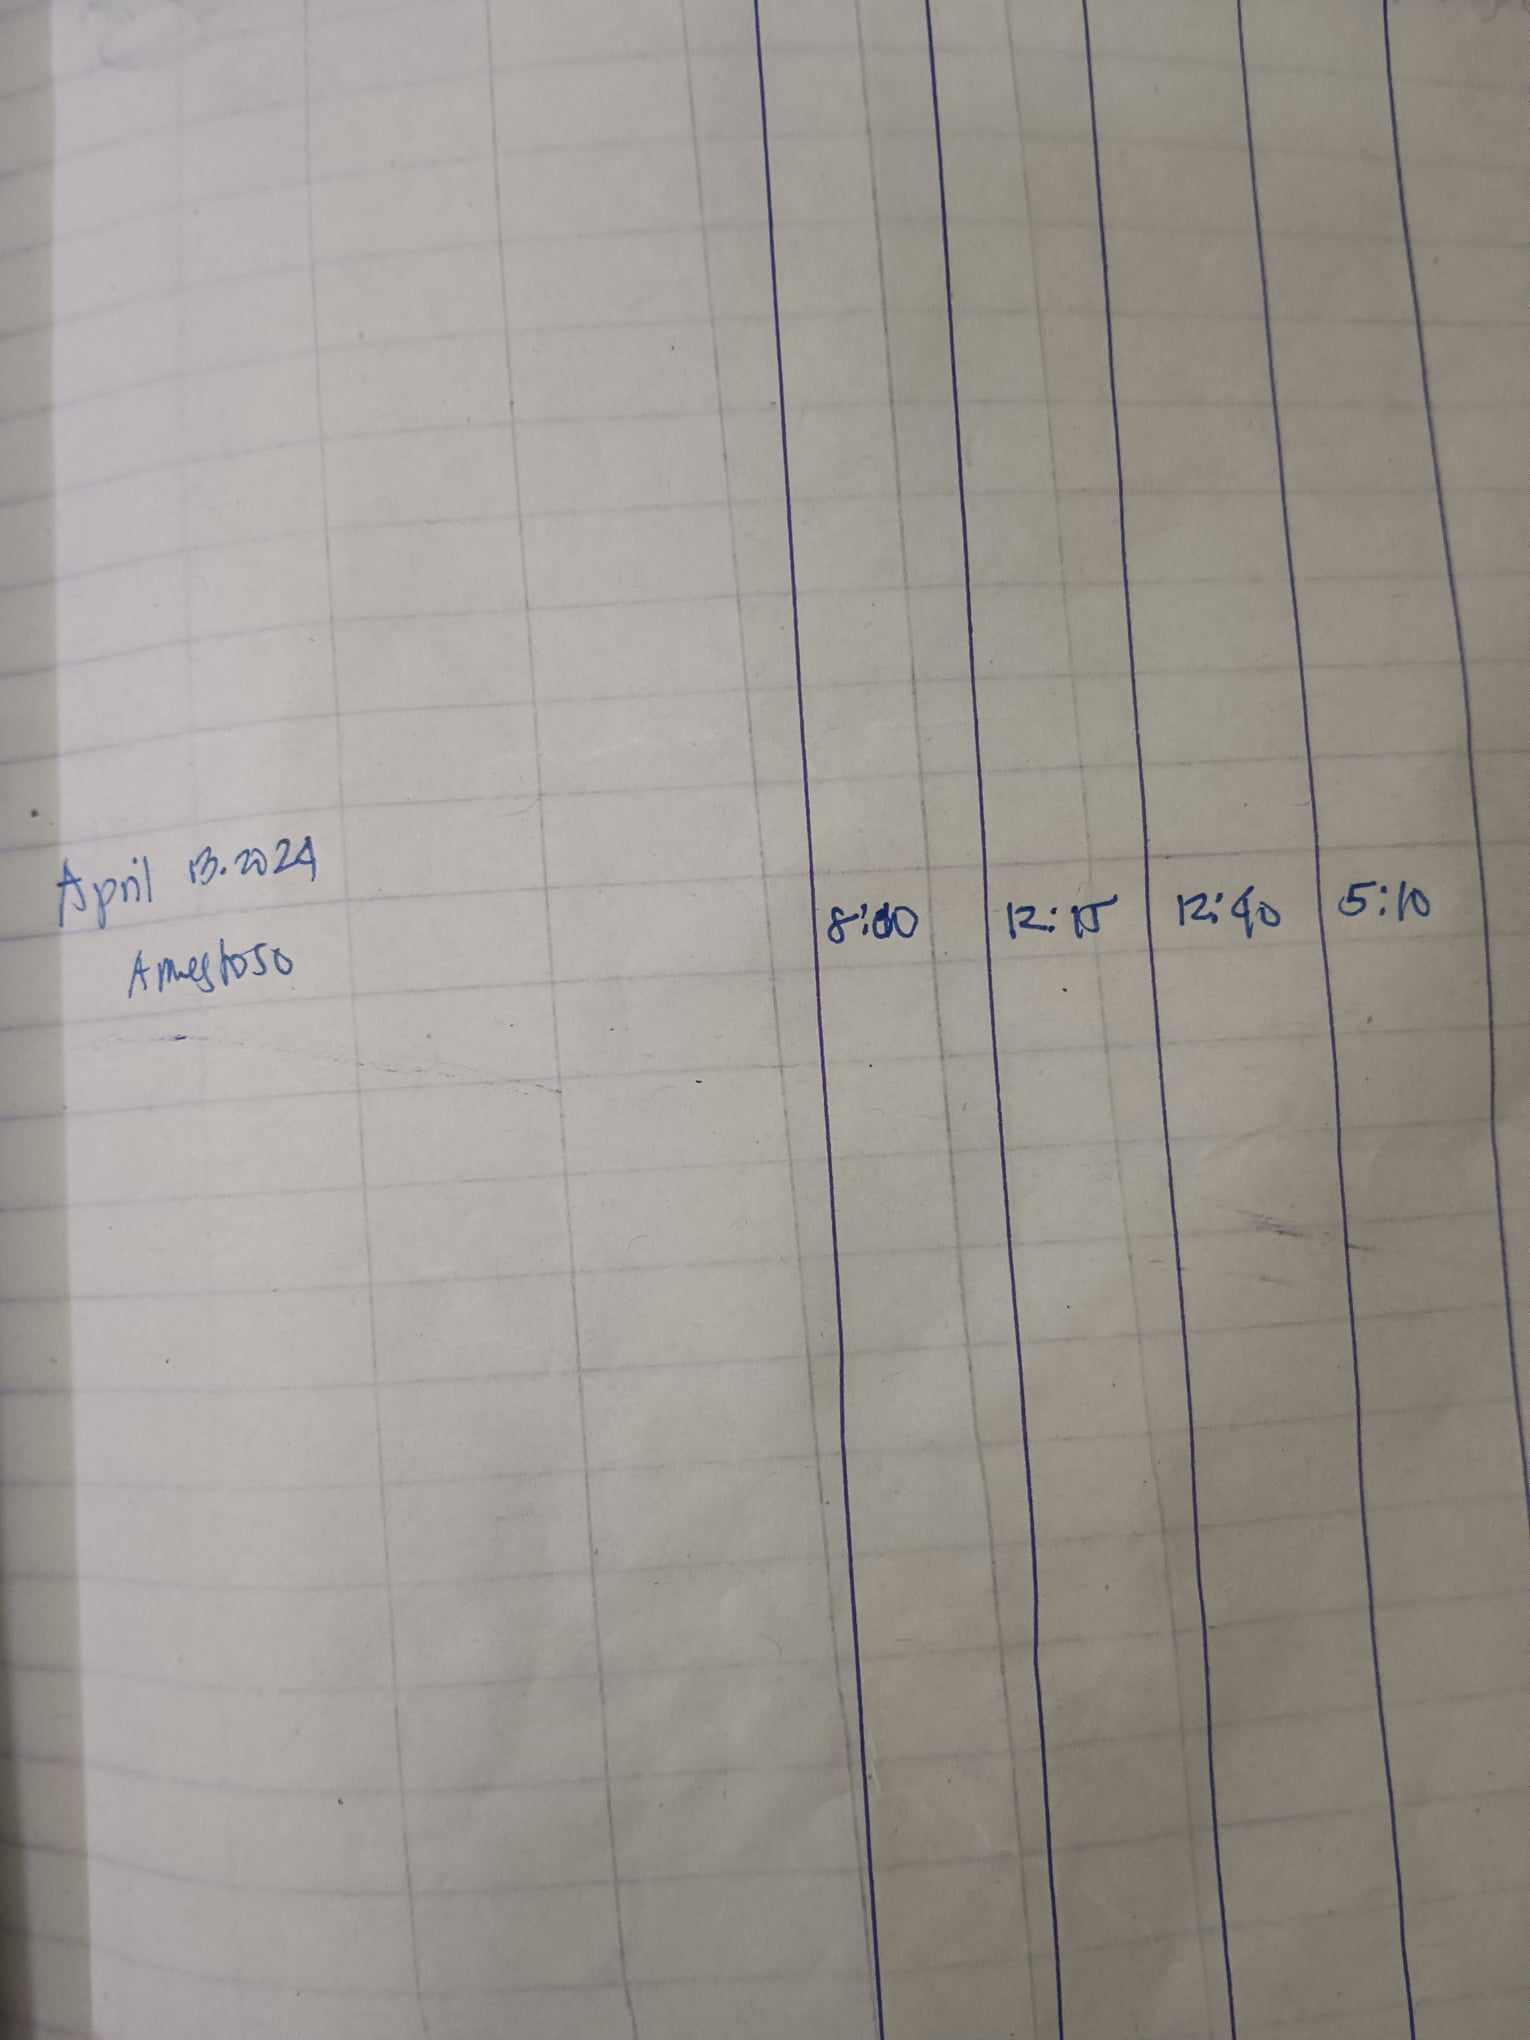 April 13.2024
Amestoso 8:00 12:15 12:40 5:10